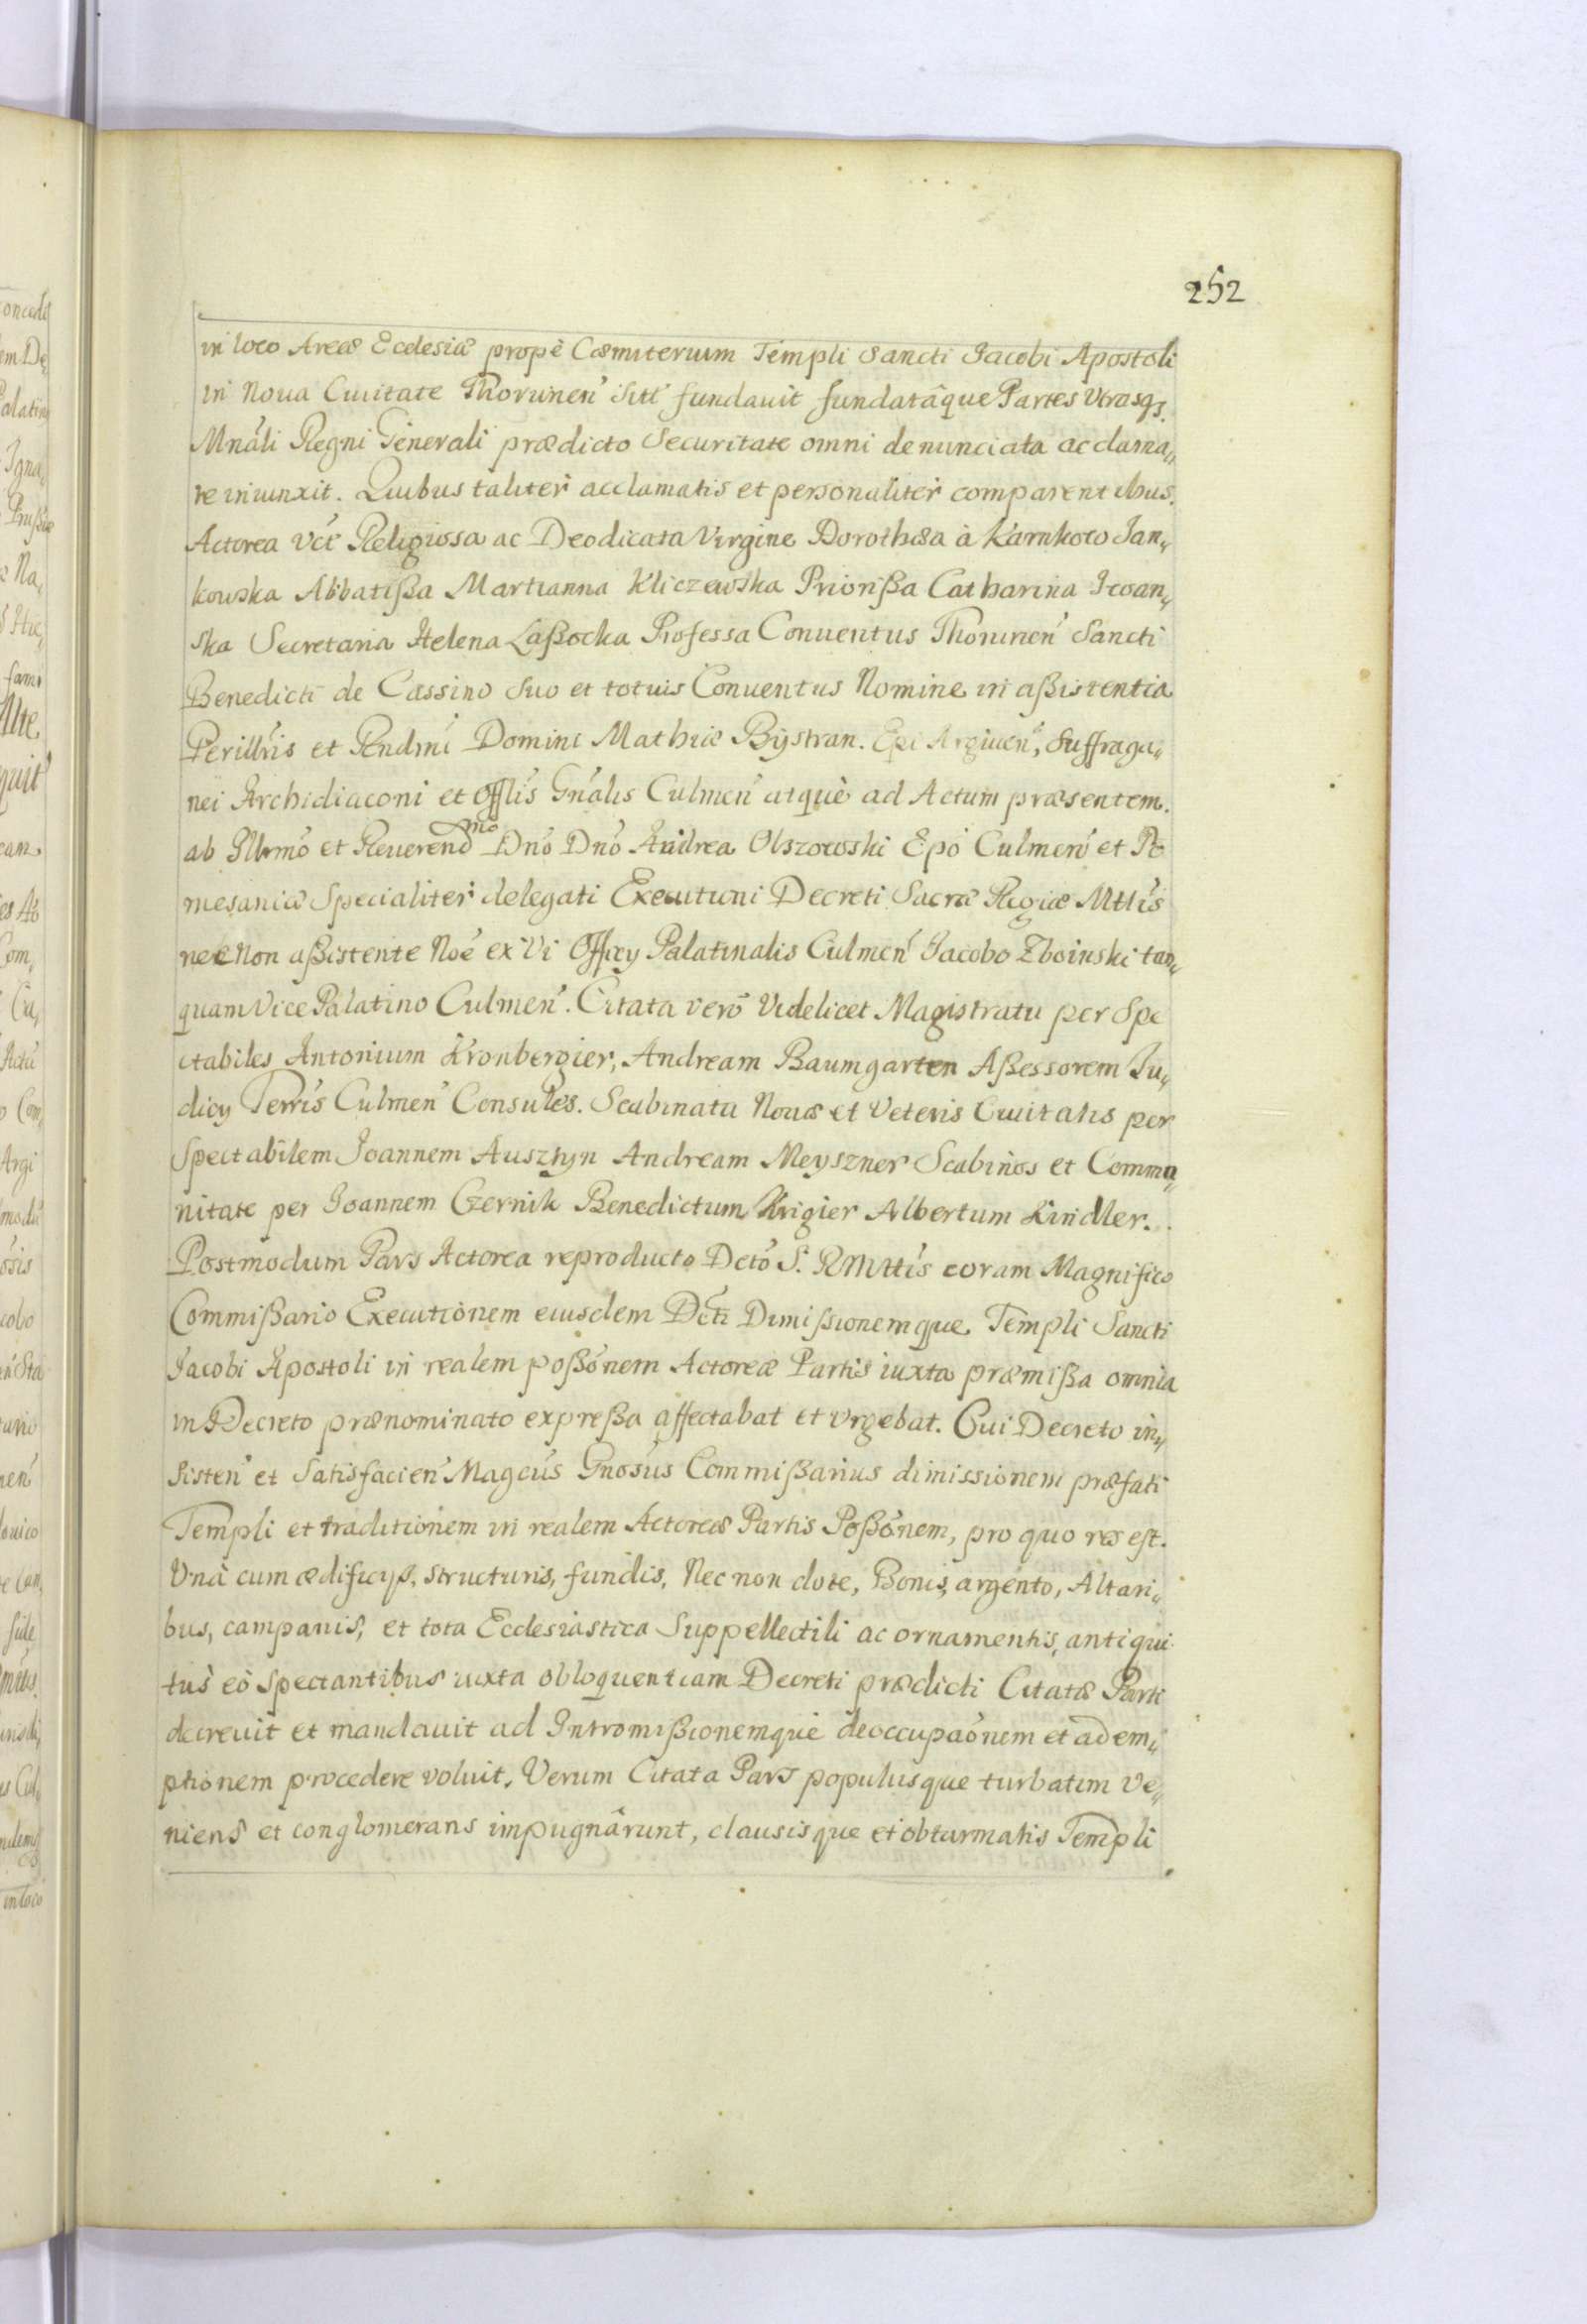 252
in loco Areæ Ecclesiæ propè Cæmiterium Templi Sancti Jacobi Apostoli
in Noua Ciuitate Thorunen̄ sitt fundauit fundatâque Partes Vtrasqȝ.
Mnāli Regni Generali prædicto Securitate omni denunciata acclama„
re iniunxit. Quibus taliter acclamatis et personaliter comparentibus.
Actorea vēt Religiosa ac Deodicata Virgine Dorothæa à Karnkowo Jan„
kowska Abbatißa Martianna Kliczewska Priorißa Catharina Iwan„
ska Secretaria Helena Laßocka Professa Conuentus Thorunen̄ Sancti
Benedicti de Cassino Suo et totuis Conuentus Nomine in aßistentia
Perillr̄is et Rendmī Domini Mathiæ Bÿstran. Epī Argiuen̄, Suffraga„
nei Archidiaconi et Offlīs Gnālis Culmen̄ atquè ad Actum præsentem.
ab Illrmō et Reuerendmo Dnō Dnō Andrea Olszowski Epō Culmen̄ et Po
mesaniæ Specialiter delegati Executioni Decreti Sacræ Regiæ Mttīs
nec Non aßistente Noē ex Vi Officy Palatinalis Culmen̄ Jacobo Zboinski tan„
quam Vice Palatino Culmen̄. Citata verō Videlicet Magistratu per Spe
ctabiles Antonium Kronbergier, Andream Baumgarten Aßessorem Ju„
dicy Terris Culmen̄ Consules. Scabinatu Nouæ et Veteris Ciuitatis per
Spectabilem Joannem Ausztyn Andream Meyszner Scabinos et Commu„
nitate per Joannem Czernik Benedictum Krigier Albertum Kindler.
Postmodum Pars Actorea reproducto Dctō S. R Mttīs coram Magnifico
Commißario Executionem eiusdem Dctī Dimißionemque Templi Sancti
Jacobi Apostoli in realem poßōnem Actoreæ Partis iuxta præmißa omnia
in Decreto prænominato expreßa affectabat et vrgebat. Cui Decreto in„
sisten̄ et Satisfacien̄ Magcūs Gnōsus Commißarius dimissionem præfati
Templi et traditionem in realem Actoreæ Partis Poßōnem, pro quo res est.
Vnà cum ædificys, structuris, fundis, Nec non dote, Bonis, argento, Altari„
bus, campanis, et tota Ecclesiastica Suppellectili ac ornamentis, antiqui
tùs eò Spectantibus iuxta obloquentiam Decreti prædicti Citatæ Parti
decreuit et mandauit ad Intromißionemquè deoccupaōnem et adem„
ptionem procedere voluit. Verum Citata Pars populusque turbatim Ve„
niens et conglomerans impugnârunt, clausisque et obturmatis Templi